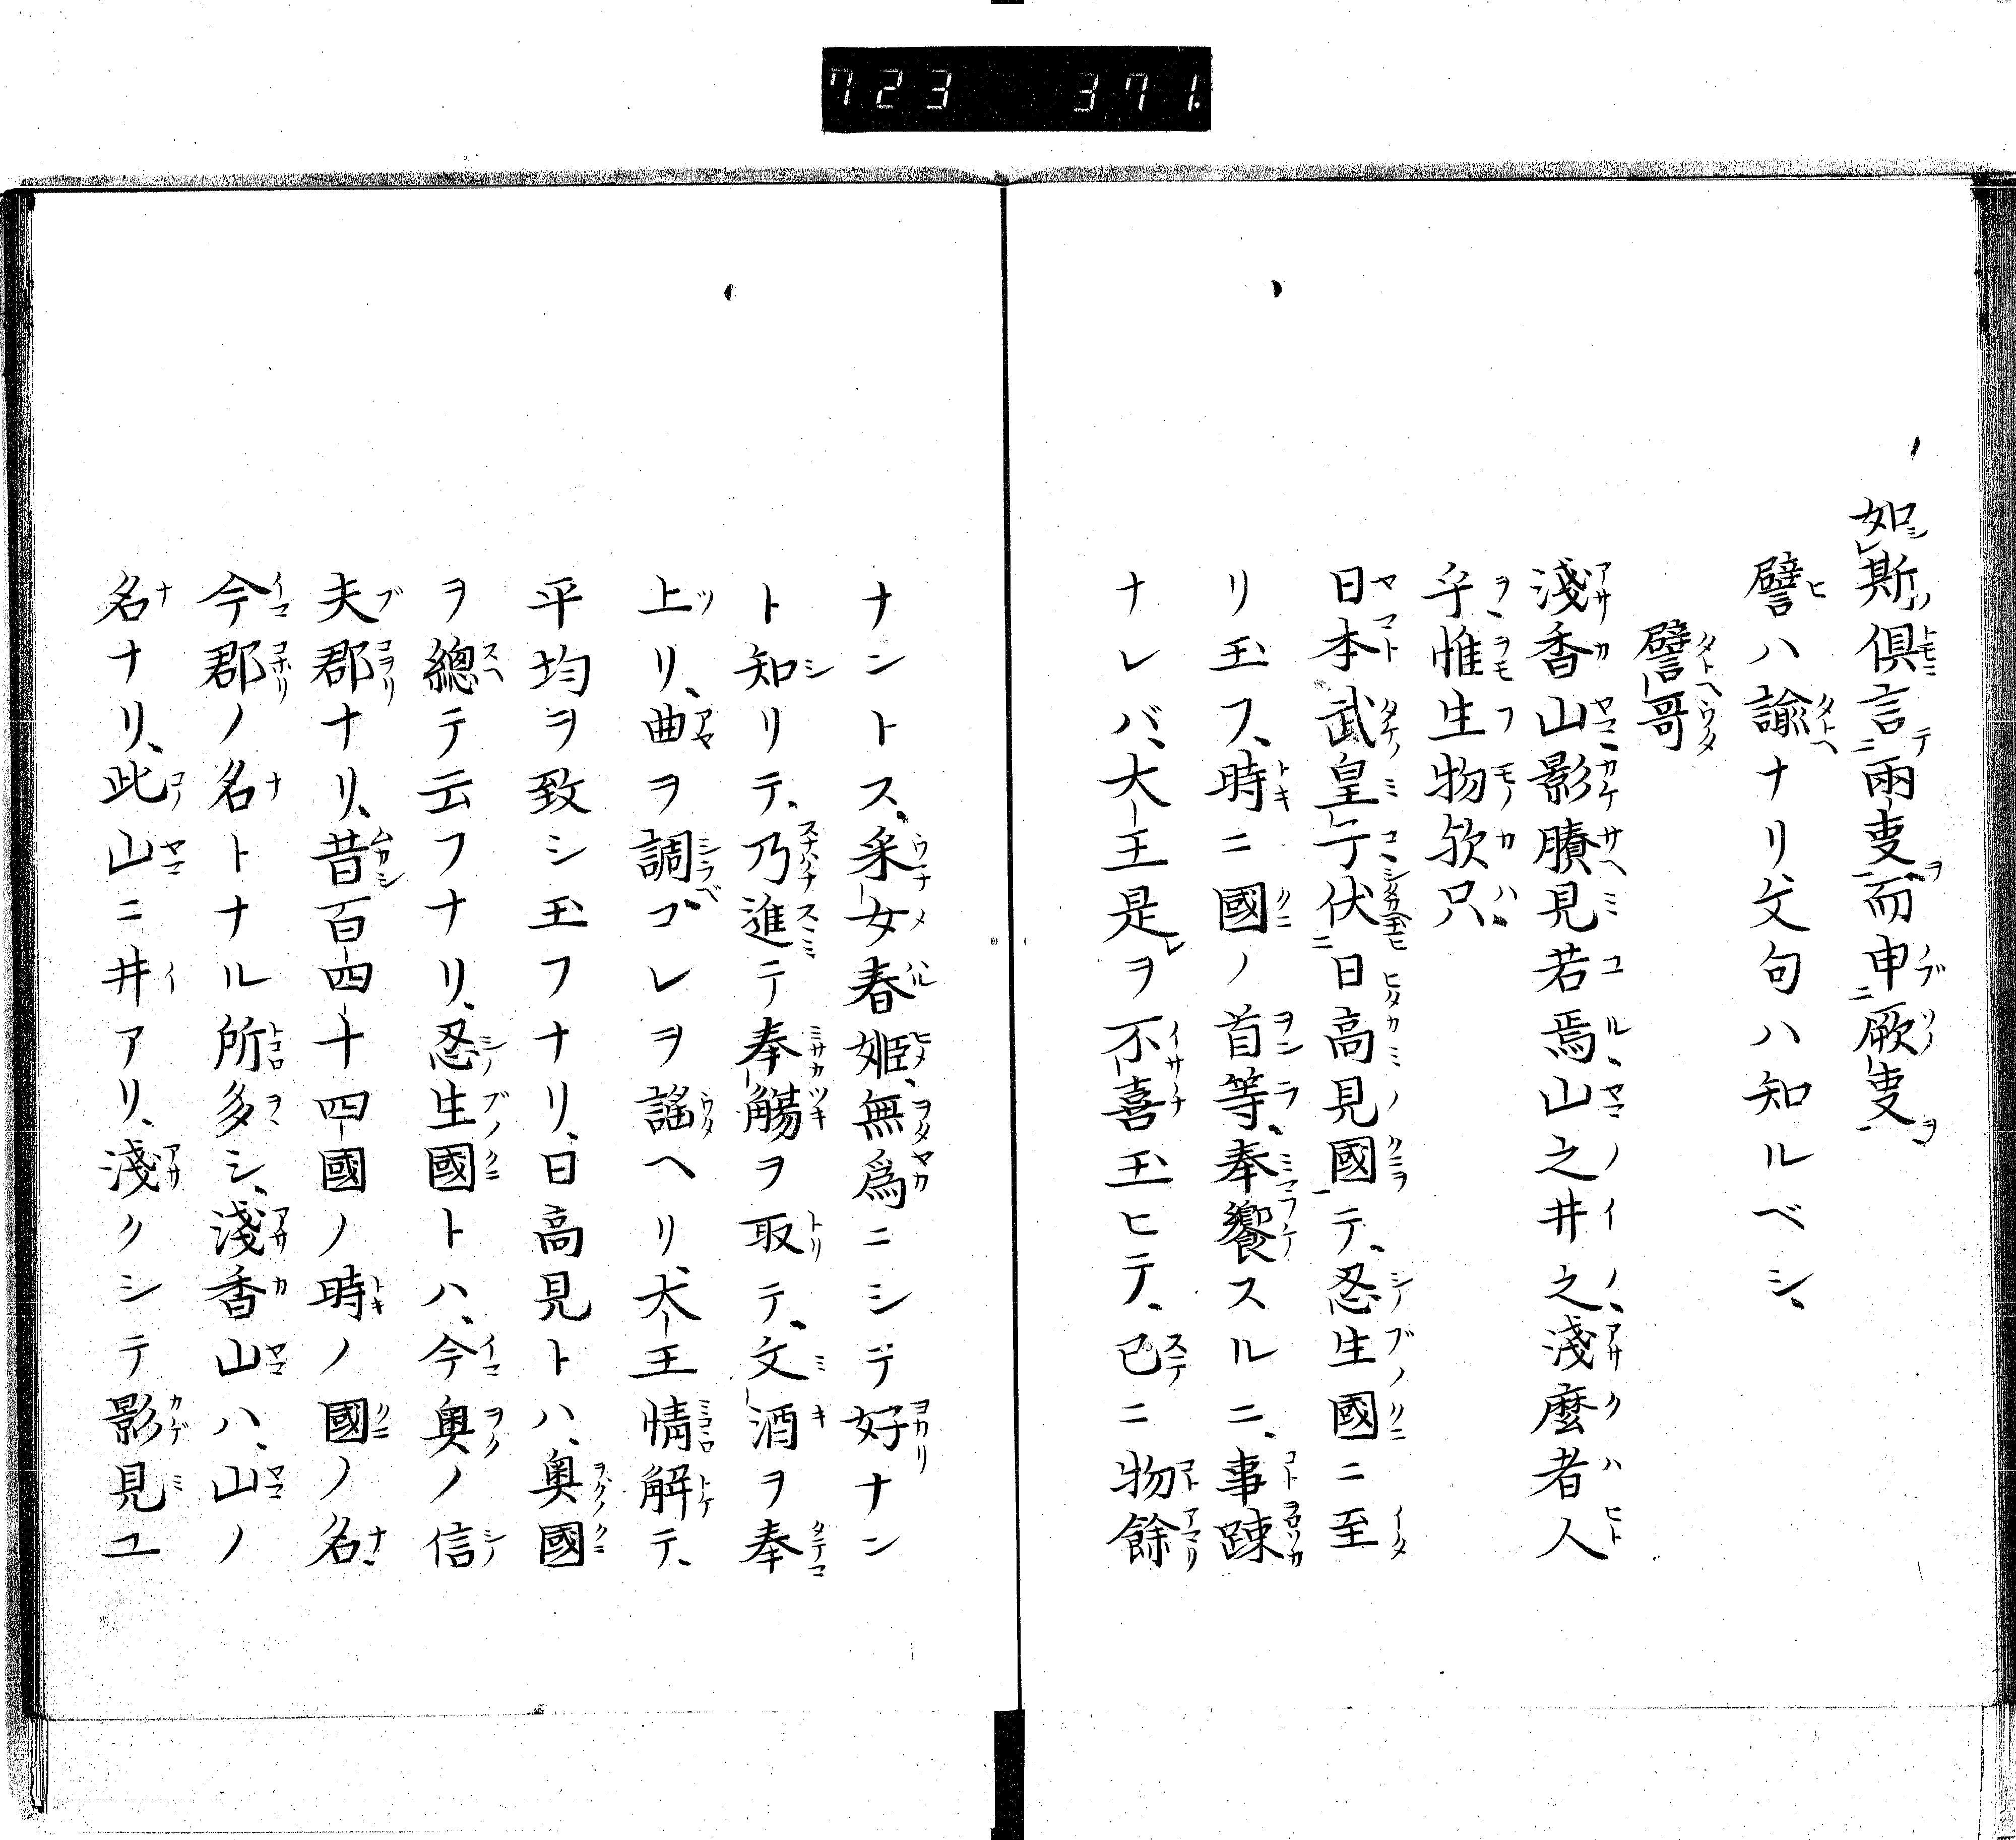 723 371
如斯倶言兩叓而申厥叓
譬ハ諭ナリ、文句ハ知ルベシ、
譬哥
淺香山影賸見若焉山之井之淺麼者人
乎惟生物欤只
日本武皇亍伏日高見國テ、忍生國ニ至
リ玉フ、時ニ國ノ首等、奉饗スルニ、事踈
ナレバ、大王是ヲ不喜玉ヒテ、已ニ物餘
ナントス、采女春姫、無爲ニシテ好ナン
ト知リテ、乃進テ奉觴ヲ取テ、文酒ヲ奉
上リ、曲ヲ調ベコレヲ謡ヘリ、大王情解テ、
平均ヲ致シ玉フナリ、日高見トハ、奥國
ヲ總テ云フナリ、忍生國トハ、今奥ノ信
夫郡ナリ、昔百四十四國ノ時ノ國ノ名
今郡ノ名トナル所多シ、淺香山ハ、山ノ
名ナリ、此山ニ井アリ、淺クシテ影見ユ